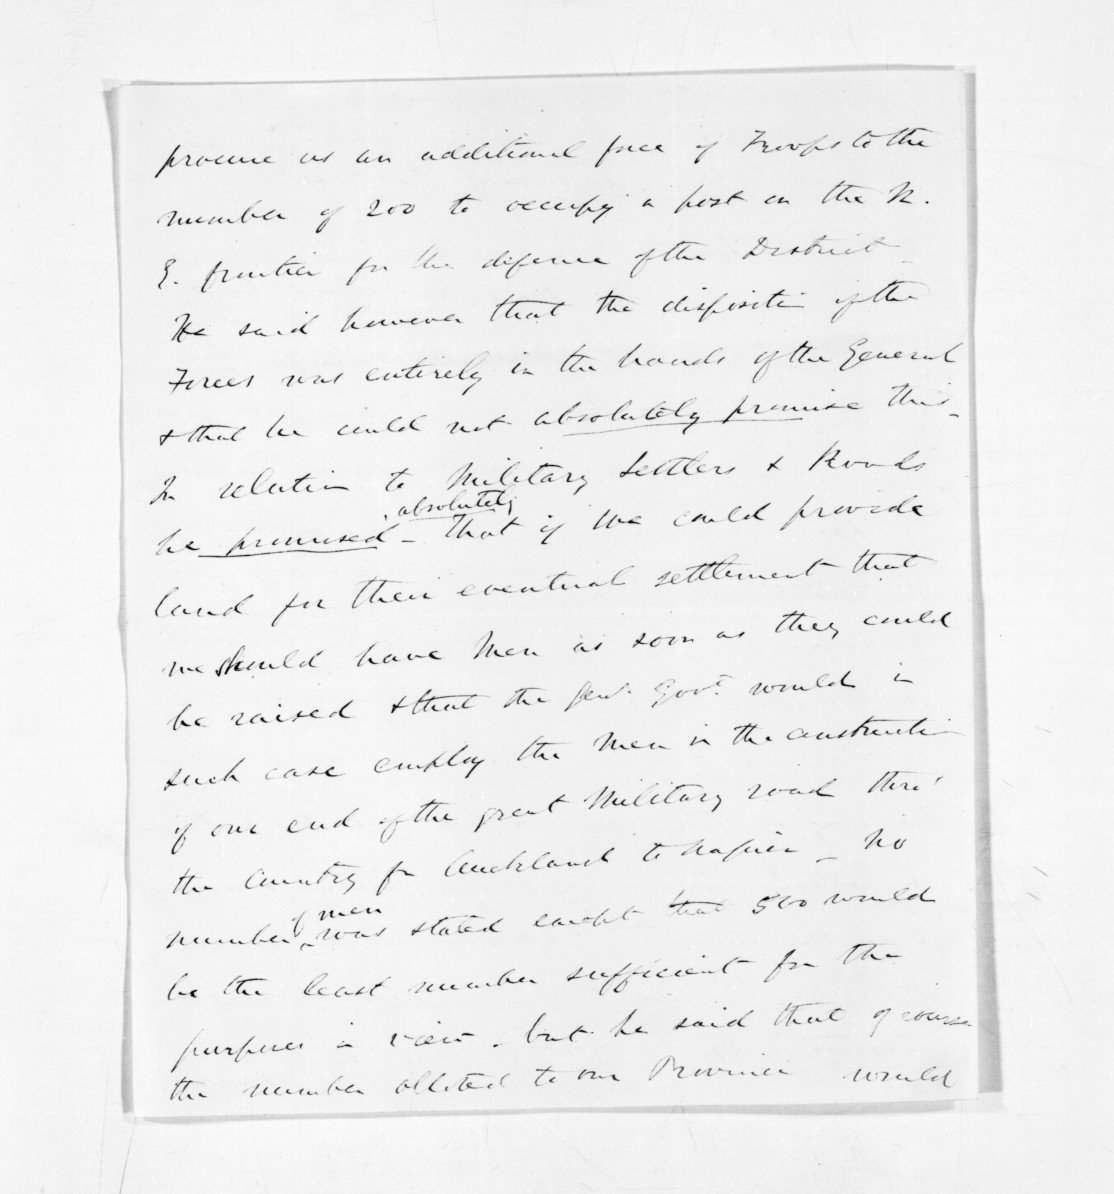 procure us an additional force of Troops to the
number of 200 to occupy a post on the N.
E. frontier for the defence of the District -
He said however that the disposition of the
Forces was entirely in the hands of the General
& that he could not absolutely promise this -
In relation to Military Settlers & Roads
absolutely
he promised - that if we could provide
land for their eventual settlement that
we should have Men as soon as they could
be raised & that the Genl. Govt. would in
such case employ the Men in the construction
of one end of the great Military road thro'
the Country fr Auckland to Napier - No
of men
number was stated except that 500 would
be the least number sufficient for the
purposes in view - but he said that of course
the number allotted to our Province would